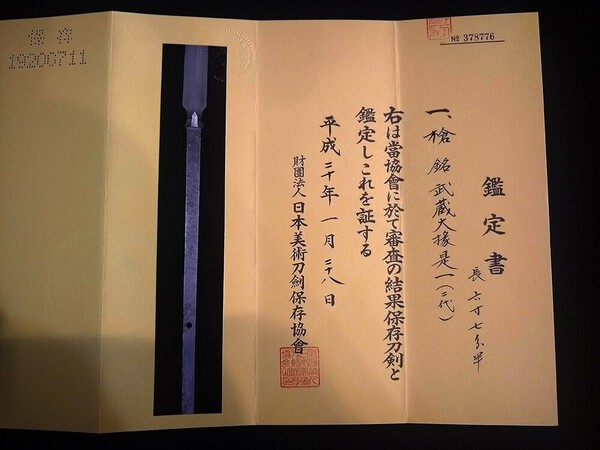 № 378776
鑑定書
一、槍 銘 武蔵大掾是一(二代)
長 六寸七分半
右は當協會に於て審査の結果保存刀剣と
鑑定しこれを証する
平成二十年一月二十八日
財團法人日本美術刀劍保存協會
保存
19200711